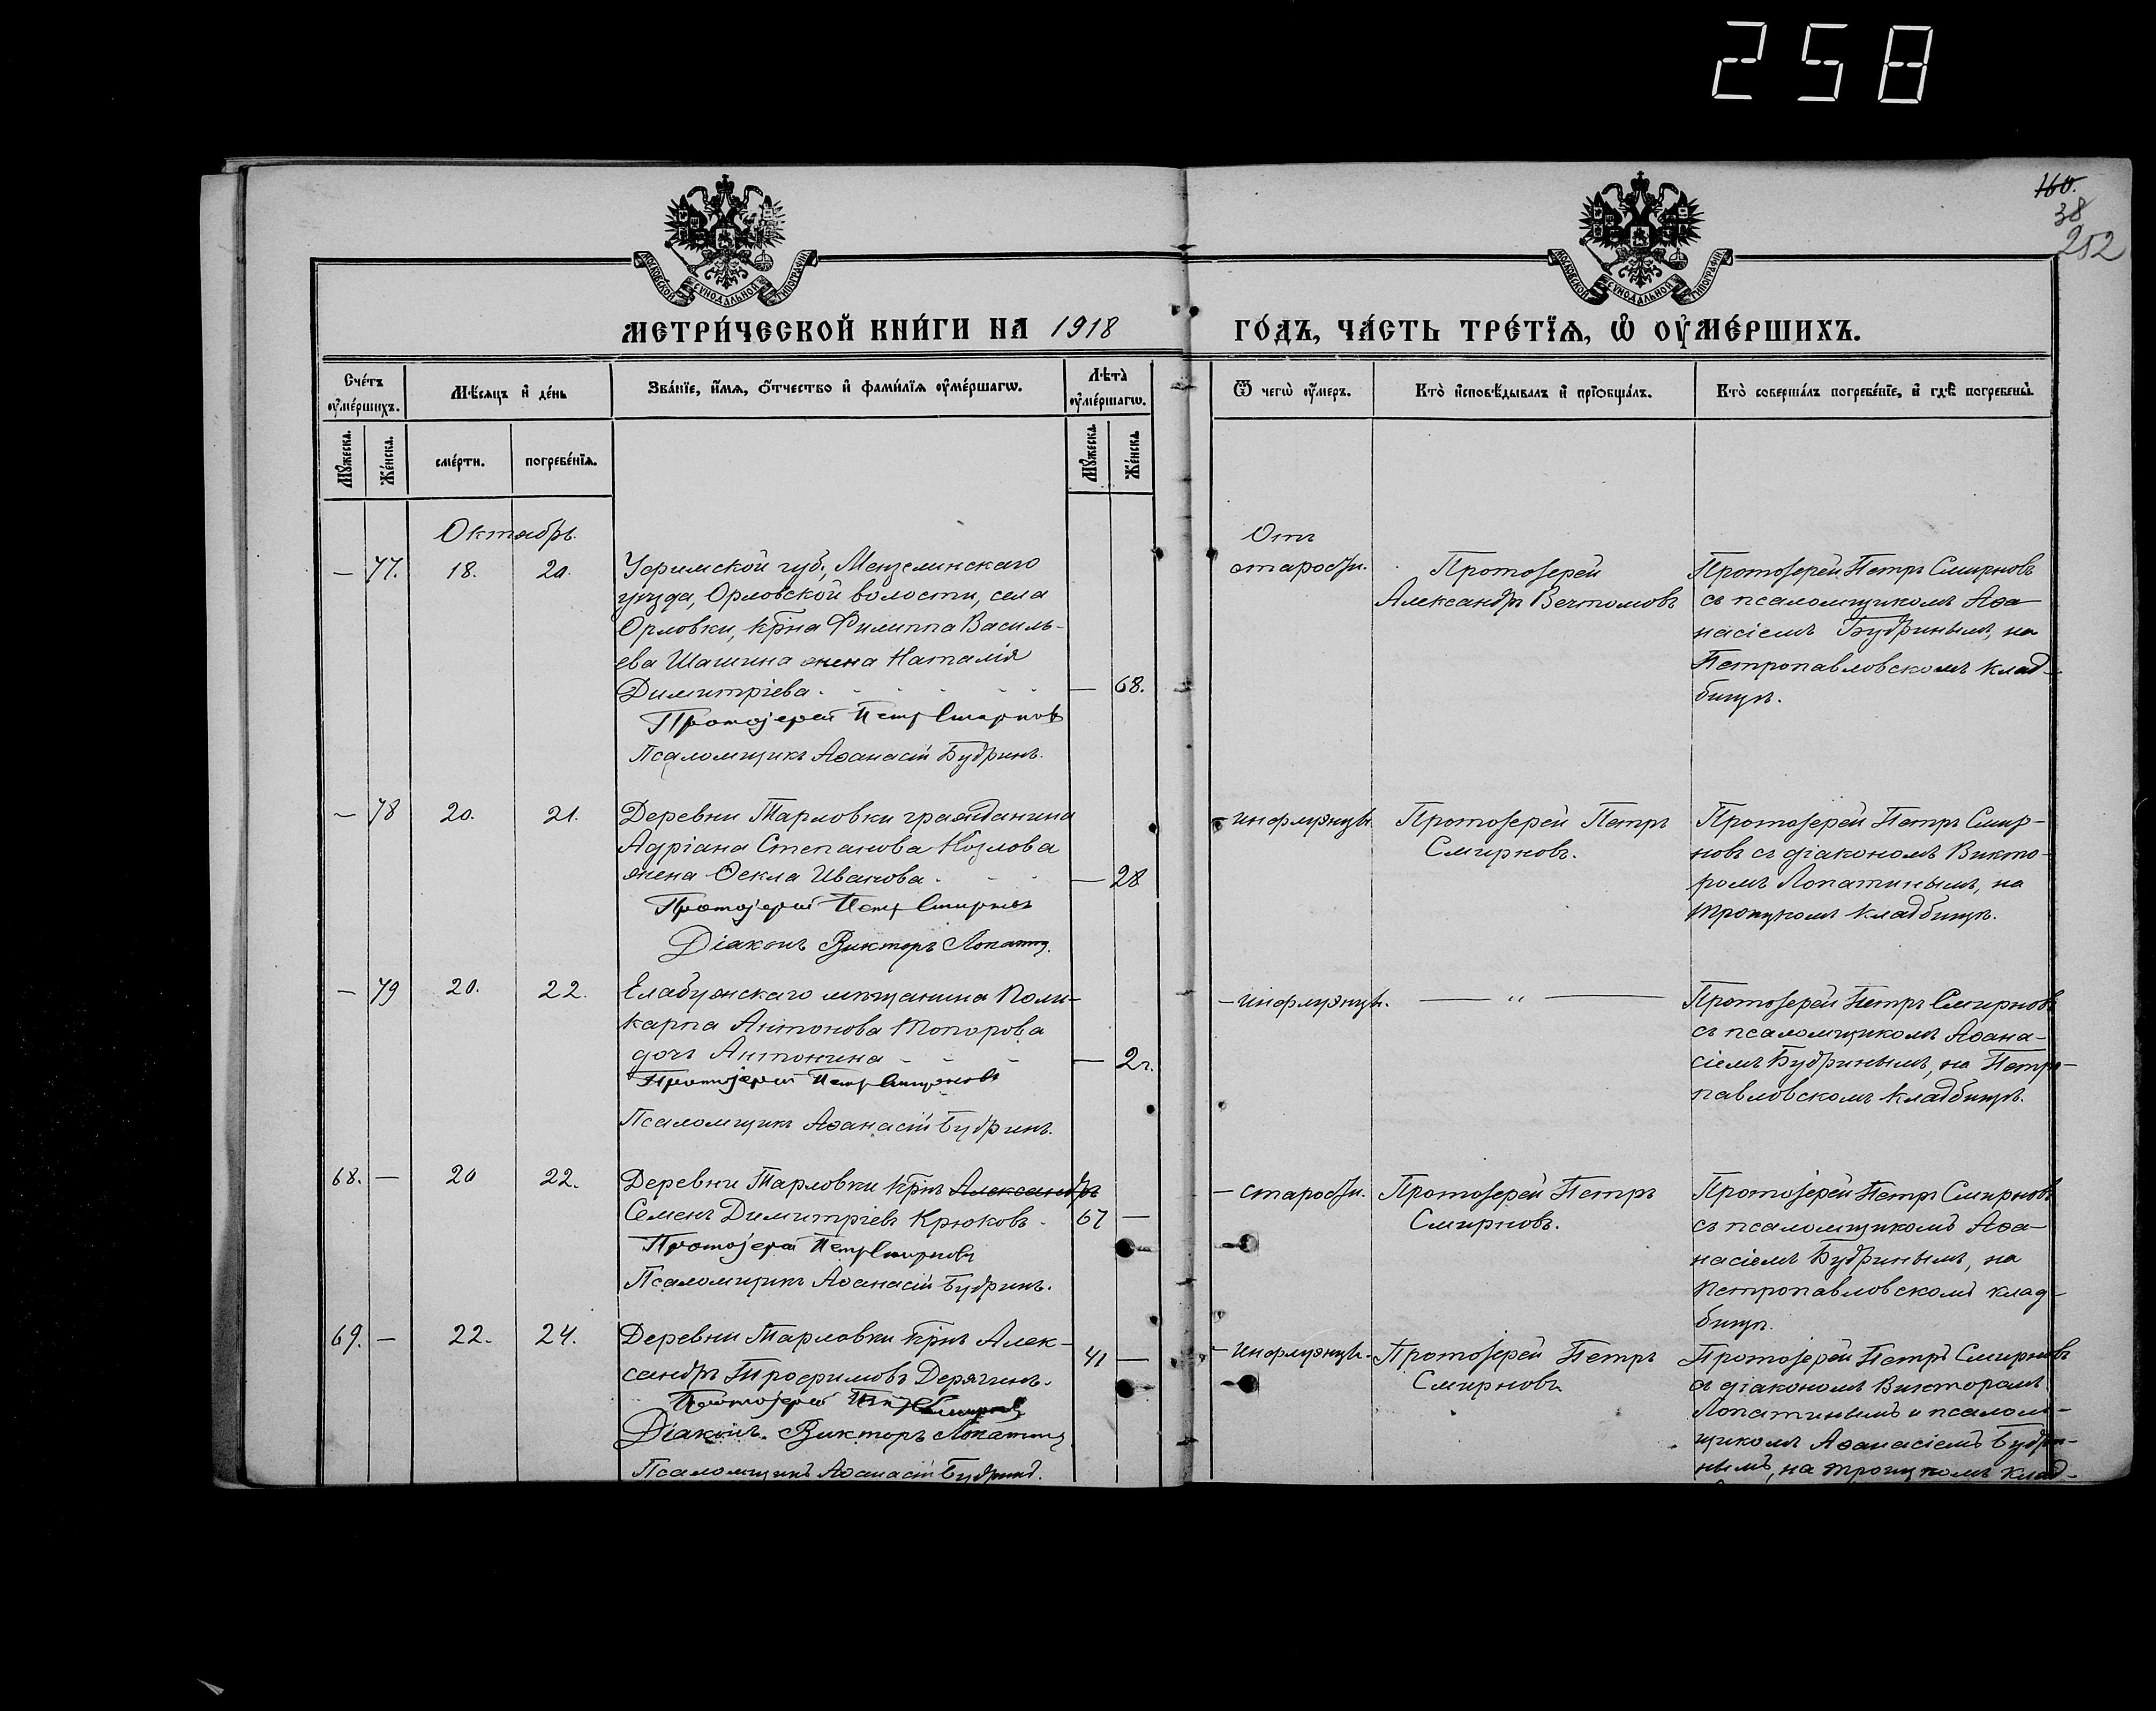 258
160.
38
252
МОСКОВСКОЙ СѴНОДАЛЬНОЙ ТИПОГРАФІИ
МОСКОВСКОЙ СѴНОДАЛЬНОЙ ТИПОГРАФІИ
МЕТРИ́ЧЕСКОЙ КНИ́ГИ НА 1918 ГО́ДЪ, ЧА́СТЬ ТРЕ́ТЇѦ, Ѡ҆ ОУ҆МЕ́РШИХЪ.
Сче́тъ оу҆ме́ршихъ.
Мѣ́сѧцъ и҆ де́нь
Зва́нїе, и҆́мѧ, ѻ҆́тчество и҆ фами́лїѧ оу҆ме́ршагѡ.
Лѣ́та оу҆ме́ршагѡ.
Ѿ чегѡ̀ оу҆́меръ.
Кто̀ и҆сповѣ́дывалъ и҆ прїѻбща́лъ.
Кто̀ соверша́лъ погребе́нїе, и҆ гдѣ̀ погребены̀.
Мꙋ́жеска.
Же́нска.
сме́рти.
погребе́нїѧ.
Мꙋ́жеска.
Же́нска.
Октябрь.
— 77. 18. 20.
Уфимской губ., Мензелинскаго
уѣзда, Орловской волости, села
Орловки, крна Филиппа Василь-
ева Шашина жена Наталія
Димитріева. — 68.
Протоіерей Петр Смирновъ
Псаломщикъ Аѳанасій Будринъ.
Отъ
старости.
Протоіерей
Александръ Вечтомовъ
Протоіерей Петръ Смирновъ
съ псаломщикомъ Аѳа-
насіемъ Будринымъ, на
Петропавловскомъ клад-
бищѣ.
— 78 20. 21.
Деревни Тарловки гражданина
Адріана Степанова Козлова
жена Ѳекла Иванова. — 28
Протоіерей Петр Смирновъ
Діаконъ Викторъ Лопатин.
— инфлуэнцы.
Протоіерей Петръ
Смирновъ.
Протоіерей Петръ Смир-
новъ съ діакономъ Викто-
ромъ Лопатинымъ, на
Троицкомъ кладбищѣ.
— 79 20. 22.
Елабужскаго мѣщанина Поли-
карпа Антонова Топорова
дочь Антонина — 2 г.
Протоіерей Петр Смирновъ
Псаломщикъ Аѳанасій Будринъ.
— инфлуэнцы.
— „ —
Протоіерей Петръ Смирновъ
съ псаломщикомъ Аѳана-
сіемъ Будринымъ, на Петро-
павловскомъ кладбищѣ.
68. — 20 22.
Деревни Тарловки крнъ Александръ
Семенъ Димитріевъ Крюковъ. 67 —
Протоіерей Петр Смирновъ
Псаломщикъ Аѳанасій Будринъ.
— старости.
Протоіерей Петръ
Смирновъ.
Протоіерей Петръ Смирновъ
съ псаломщикомъ Аѳа-
насіемъ Будринымъ, на
Петропавловскомъ клад-
бищѣ.
69. — 22. 24.
Деревни Тарловки крнъ Алек-
сандръ Трофимовъ Дерягинъ. 41 —
Протоіерей Петр Смирновъ
Діаконъ Викторъ Лопатин
Псаломщикъ Аѳанасій Будринъ.
— инфлуэнцы.
Протоіерей Петръ
Смирновъ
Протоіерей Петръ Смирновъ
съ діакономъ Викторомъ
Лопатинымъ и псалом-
щикомъ Аѳанасіемъ Будри-
нымъ, на Троицкомъ клад-